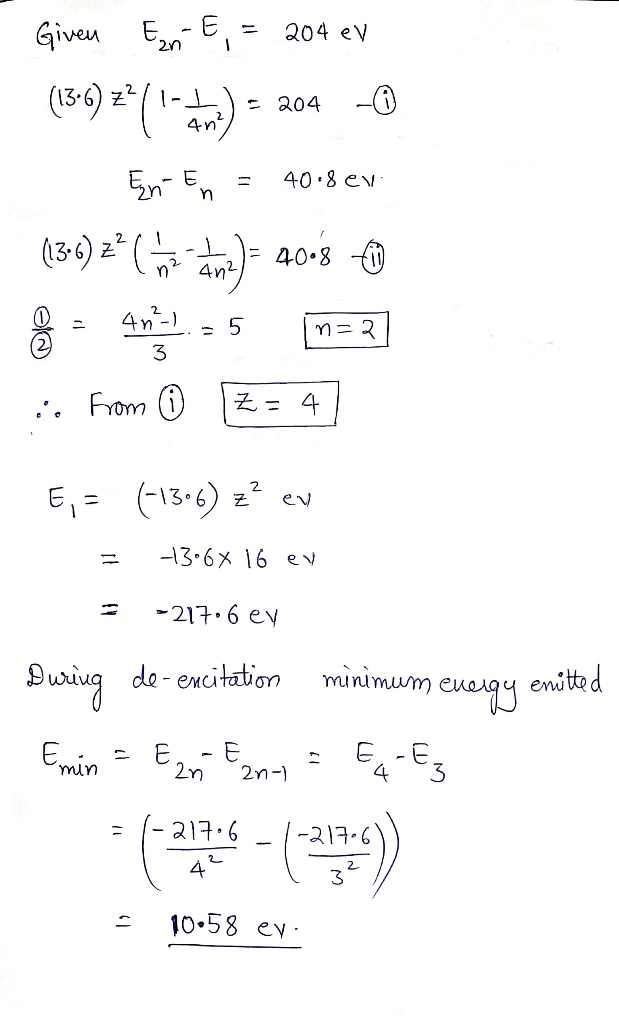 Given E₂ₙ - E₁ = 204 eV
(13.6) z² (1 - 1/4n²) = 204 - ⓘ
E₂ₙ - Eₙ = 40.8 eV.
(13.6) z² (1/n² - 1/4n²) = 40.8 - ⓘⓘ
①/② = 4n²-1/3 = 5 n = 2
∴ From ⓘ Z = 4
E₁ = (-13.6) z² eV
= -13.6 x 16 eV
= -217.6 eV
During de-excitation minimum energy emitted
Emin = E₂ₙ - E₂ₙ₋₁ = E₄ - E₃
= (-217.6/4² - (-217.6/3²))
= 10.58 eV.